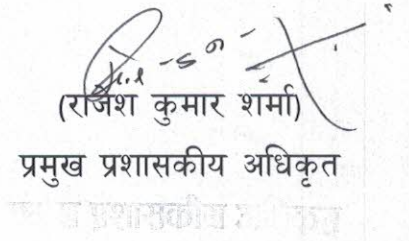 (राजेश कुमार शर्मा)
प्रमुख प्रशासकीय अधिकृत